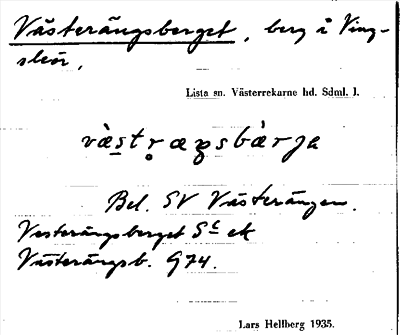 Västerängsberget, berg i Ving-
sleör.
Lista sn. Västerrekarne hd. Sdml. l.
Bel. SV Västerängen.
Vesterängsberget Sᵗ ek
Västerängsb. G74.
Lars Hellberg 1935.